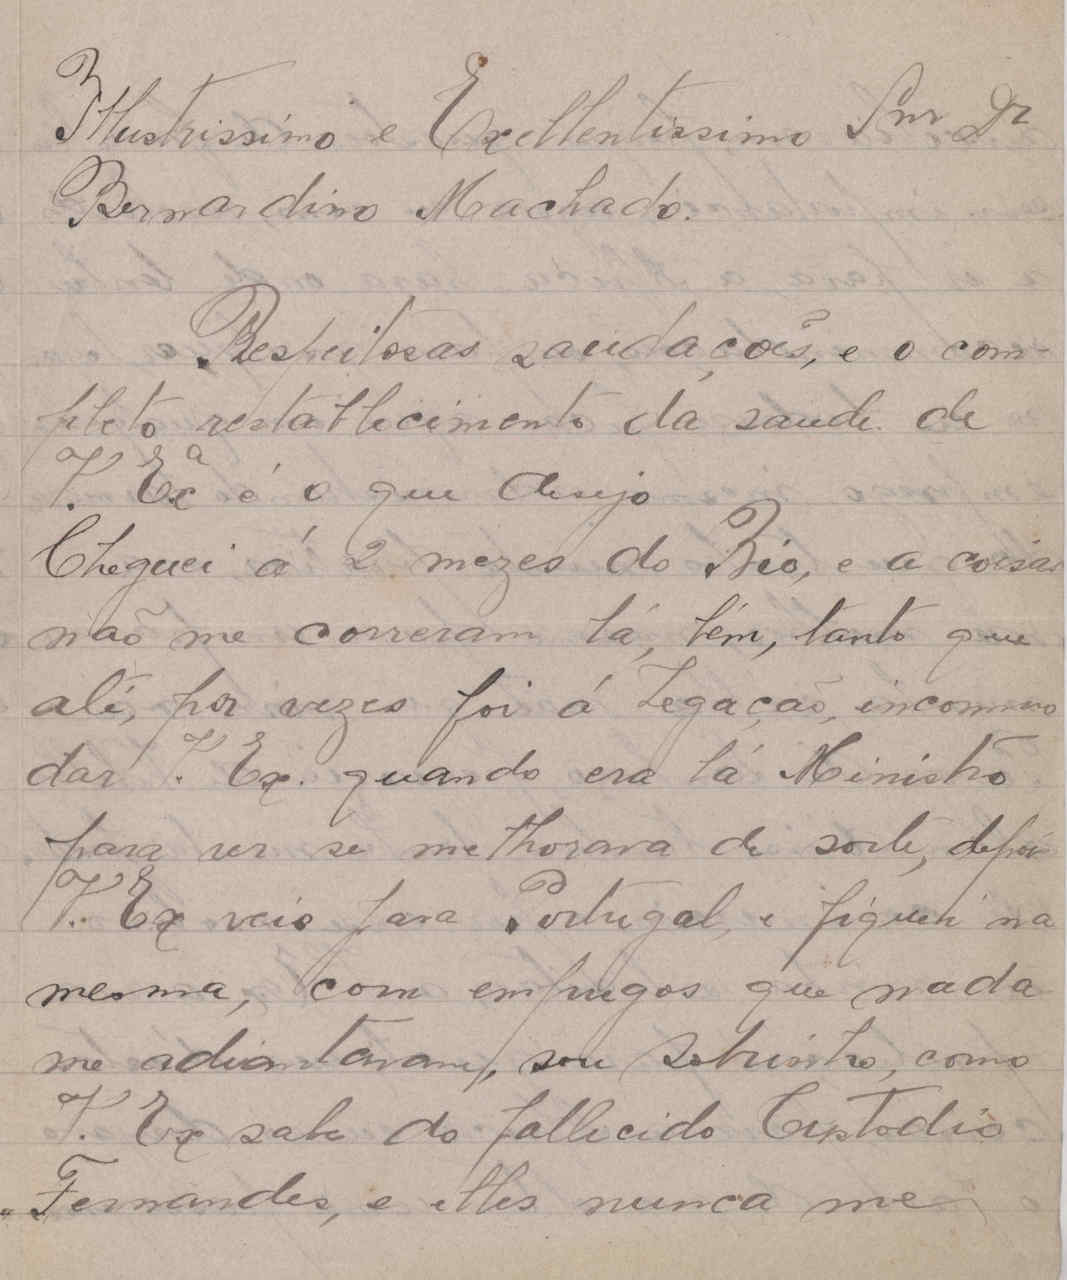 Illustrissimo e Exellentissimo Snr Dr
Bernardino Machado.
Respeitosas saudações, e o com-
pleto restabllecimento da saude de
V. Exª é o que desejo
Cheguei á 2 mezes do Rio, e a coisas
não me correram lá, bém, tanto que
até, por vezes foi á Legação, incommo
dar V. Ex. quando era lá Ministro
para ver se melhorava de sorte, depois
V. Ex veio para Portugal, e fiquei na
mesma, com empregos que nada
me adiantavam, sou Sobrinho, como
V. Ex sabe do fallecido Custodio
Fernandes, e elles nunca me